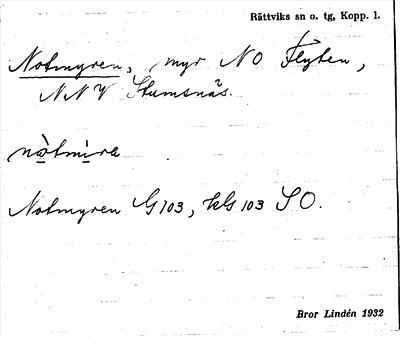 Rättviks sn o. tg, Kopp. l.
Notmyren, myr NO Flyten,
NNV Stumsnäs.
nòtmìra
Notmyren G 103, hls 103 SO.
Bror Lindén 1932